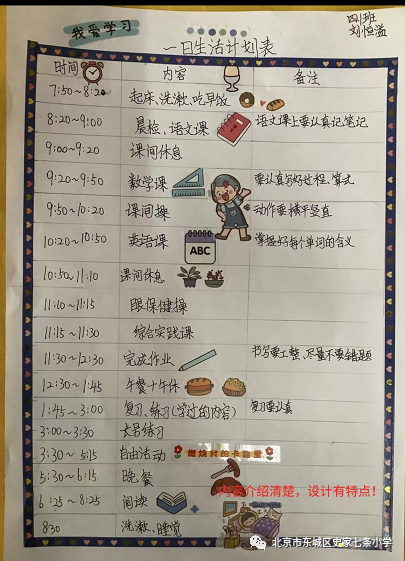 我爱学习
四1班
刘恒溢
一日生活计划表
时间 内容 备注
7:50~8:20 起床、洗漱、吃早饭
8:20~9:00 晨检、语文课 语文课上要认真记笔记
9:00~9:20 课间休息
9:20~9:50 数学课 要认真写好过程、算式
9:50~10:20 课间操 动作要横平竖直
10:20~10:50 英语课 掌握好每个单词的含义
ABC
10:50~11:10 课间休息
11:10~11:15 眼保健操
11:15~11:30 综合实践课
11:30~12:30 完成作业 书写要工整、尽量不要错题
12:30~1:45 午餐+午休
1:45~3:00 复习、练习(学过的内容) 复习要认真
3:00~3:30 练习
3:30~5:15 自由活动
燃烧我的卡路里
5:30~6:15 晚餐
内容介绍清楚，设计有特点！
6:25~8:25 阅读
830 洗漱、睡觉
北京市东城区史家七条小学